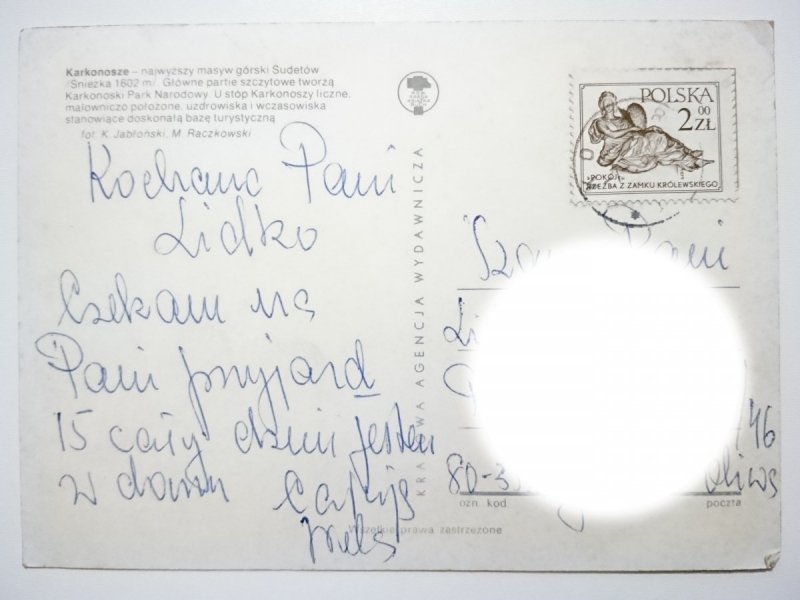 Karkonosze – najwyższy masyw górski Sudetów
/Śnieżka 1602 m/. Główne partie szczytowe tworzą
Karkonoski Park Narodowy. U stóp Karkonoszy liczne,
malowniczo położone, uzdrowiska i wczasowiska
stanowiące doskonałą bazę turystyczną.
fot. K. Jabłoński, M. Raczkowski
Kochana Pani
Lidko
Czekam na
Pani przyjazd
15 cały dzień jestem
w domu Całuję
KRAJOWA AGENCJA WYDAWNICZA
Wszelkie prawa zastrzeżone
POLSKA
2 00 ZŁ
»POKÓJ«
RZEŹBA Z ZAMKU KRÓLEWSKIEGO
Szan Pani
Li
46
80-3 Oliwa
ozn. kod poczta